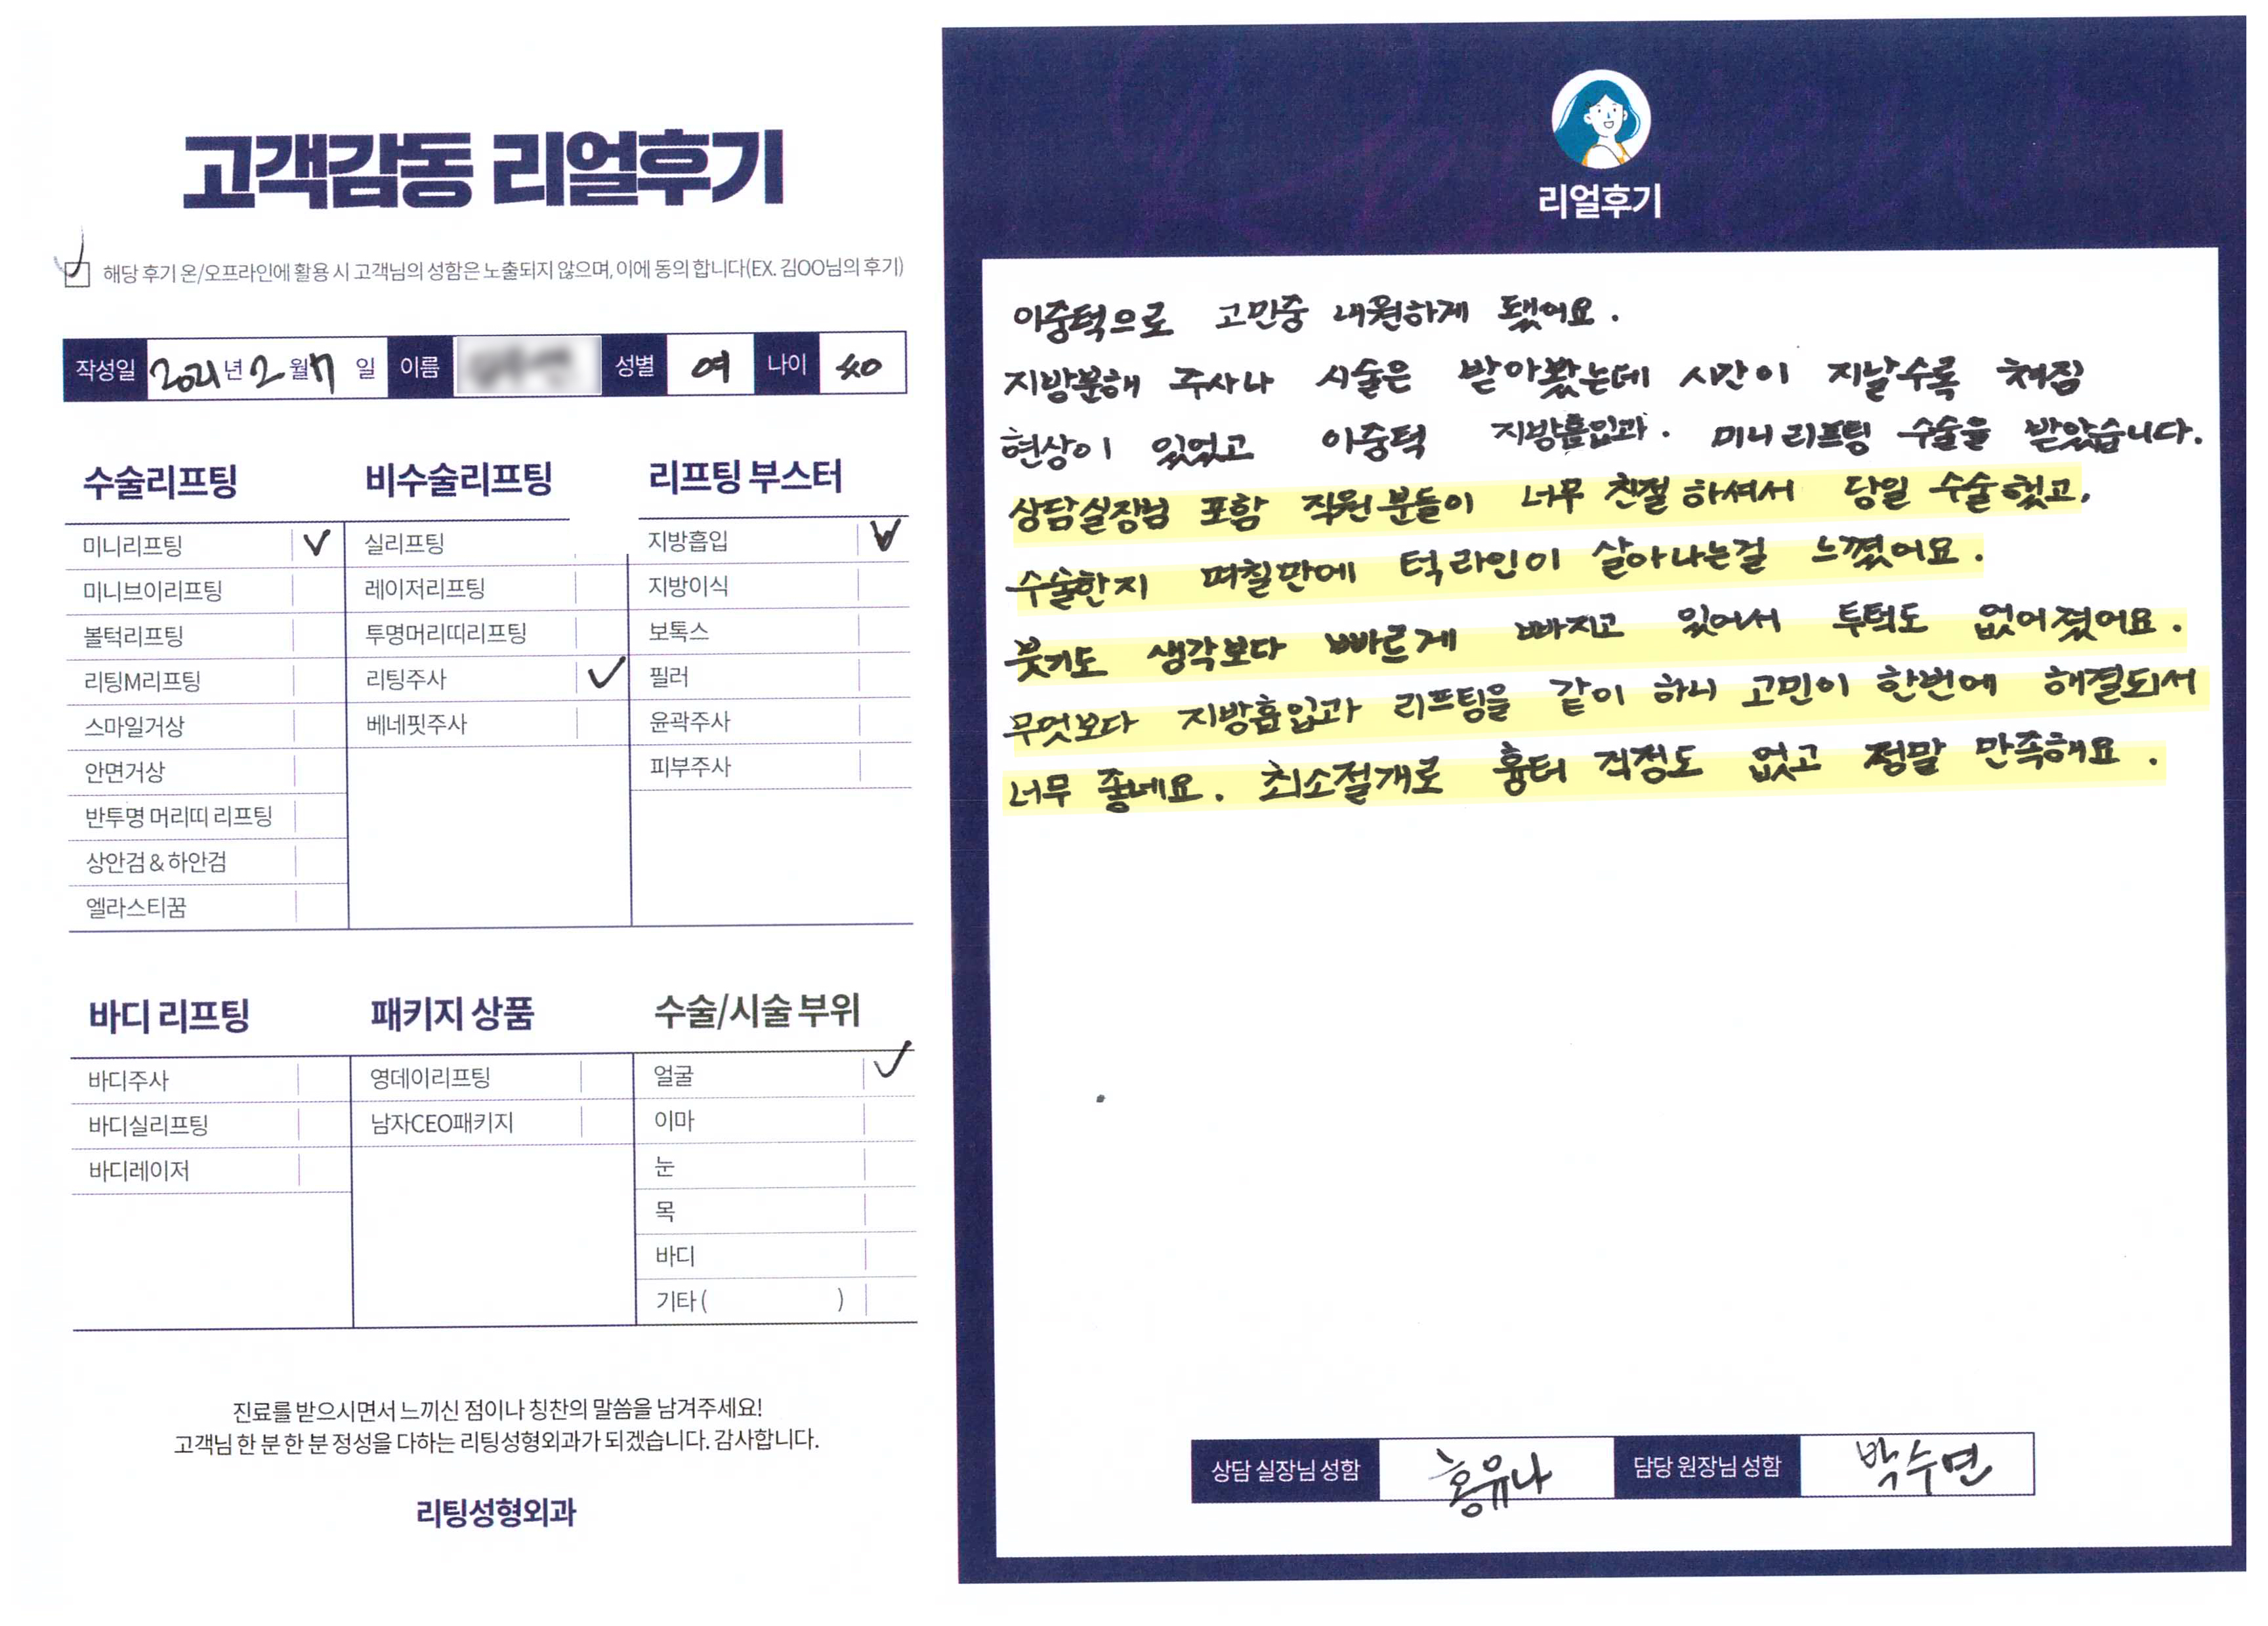 고객감동 리얼후기
해당 후기 온/오프라인에 활용 시 고객님의 성함은 노출되지 않으며, 이에 동의 합니다(EX. 김OO님의 후기)
작성일 2021년 2월 17일 이름 성별 여 나이 40
수술리프팅
미니리프팅 V
미니브이리프팅
볼턱리프팅
리팅M리프팅
스마일거상
안면거상
반투명 머리띠 리프팅
상안검 & 하안검
엘라스티꿈
비수술리프팅
실리프팅
레이저리프팅
투명머리띠리프팅
리팅주사 ✓
베네핏주사
리프팅 부스터
지방흡입 V
지방이식
보톡스
필러
윤곽주사
피부주사
바디 리프팅
바디주사
바디실리프팅
바디레이저
패키지 상품
영데이리프팅
남자CEO패키지
수술/시술 부위
얼굴 ✓
이마
눈
목
바디
기타 ( )
진료를 받으시면서 느끼신 점이나 칭찬의 말씀을 남겨주세요!
고객님 한 분 한 분 정성을 다하는 리팅성형외과가 되겠습니다. 감사합니다.
리팅성형외과
리얼후기
이중턱으로 고민중 내원하게 됐어요.
지방분해 주사나 시술은 받아봤는데 시간이 지날수록 처짐
현상이 있었고 이중턱 지방흡입과. 미니리프팅 수술을 받았습니다.
상담실장님 포함 직원분들이 너무 친절하셔서 당일 수술했고,
수술한지 며칠만에 턱라인이 살아나는걸 느꼈어요.
붓기도 생각보다 빠르게 빠지고 있어서 투턱도 없어졌어요.
무엇보다 지방흡입과 리프팅을 같이 하니 고민이 한번에 해결되서
너무 좋네요. 최소절개로 흉터 걱정도 없고 정말 만족해요.
상담 실장님 성함 홍유나 담당 원장님 성함 박수연